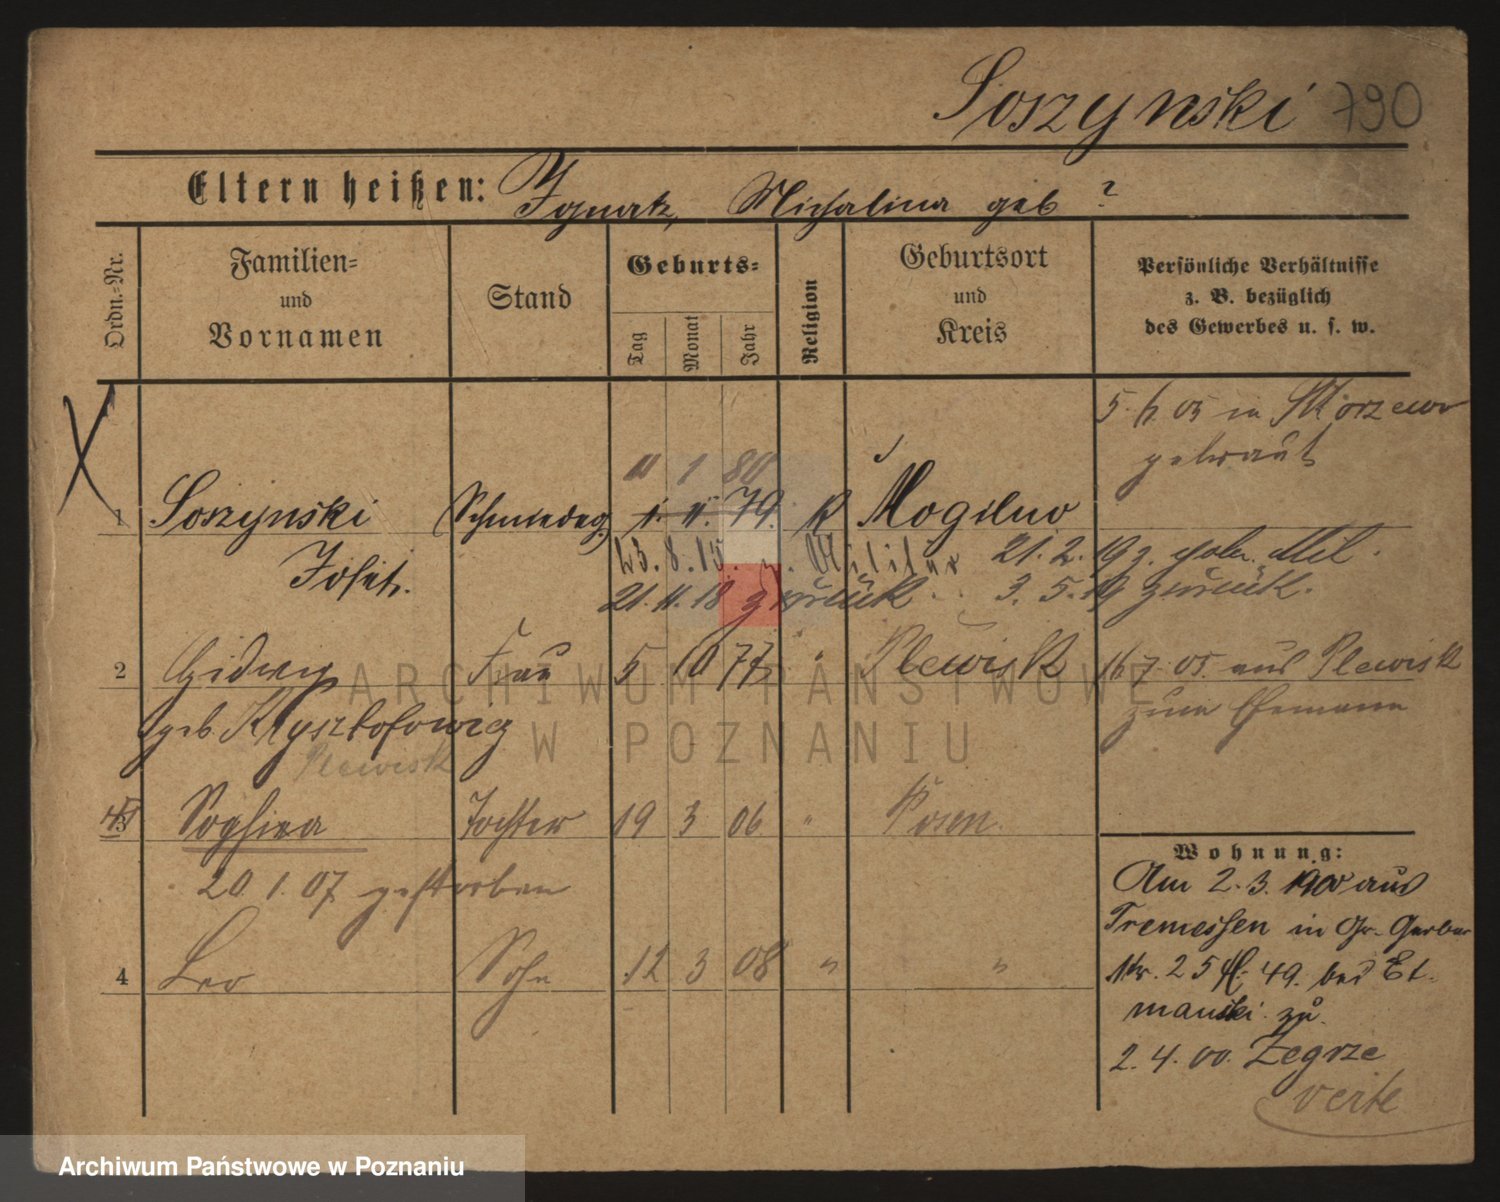 Soszynski 790
Eltern heißen: Ignatz, Michalina geb ?
Ordn.-Nr.
Familien-
und
Vornamen
Stand
Geburts-
Tag
Monat
Jahr
Religion
Geburtsort
und
Kreis
Persönliche Verhältnisse
z. B. bezüglich
des Gewerbes u. s. w.
5. 6. 05 in
getraut
11 1 80
1 Soszynski Schmiedeg. 1. 11. 79. K Mogilno
Josef.
23. 8. 15. z. Militär 21. 2. 19 z. poln. Mil.
21. 11. 18 zurück 3. 5. 19 zurück.
2 Hedwig Frau 5 10 77 " Plewisk 16 7. 05. aus Plewisk
geb. Krysztofowicz zum Ehemann
Plewisk
3 Sophia Tochter 19 3 06 " Posen.
20. 1. 07 gestorben
4 Leo Sohn 12 3 08 " "
Wohnung:
Am 2. 3. 1900 aus
Tremessen in Gr. Gerber
str. 25 49. bei Et-
manski zu
2. 4. 00. Zegrze
verte
ARCHIWUM PAŃSTWOWE
W POZNANIU
Archiwum Państwowe w Poznaniu